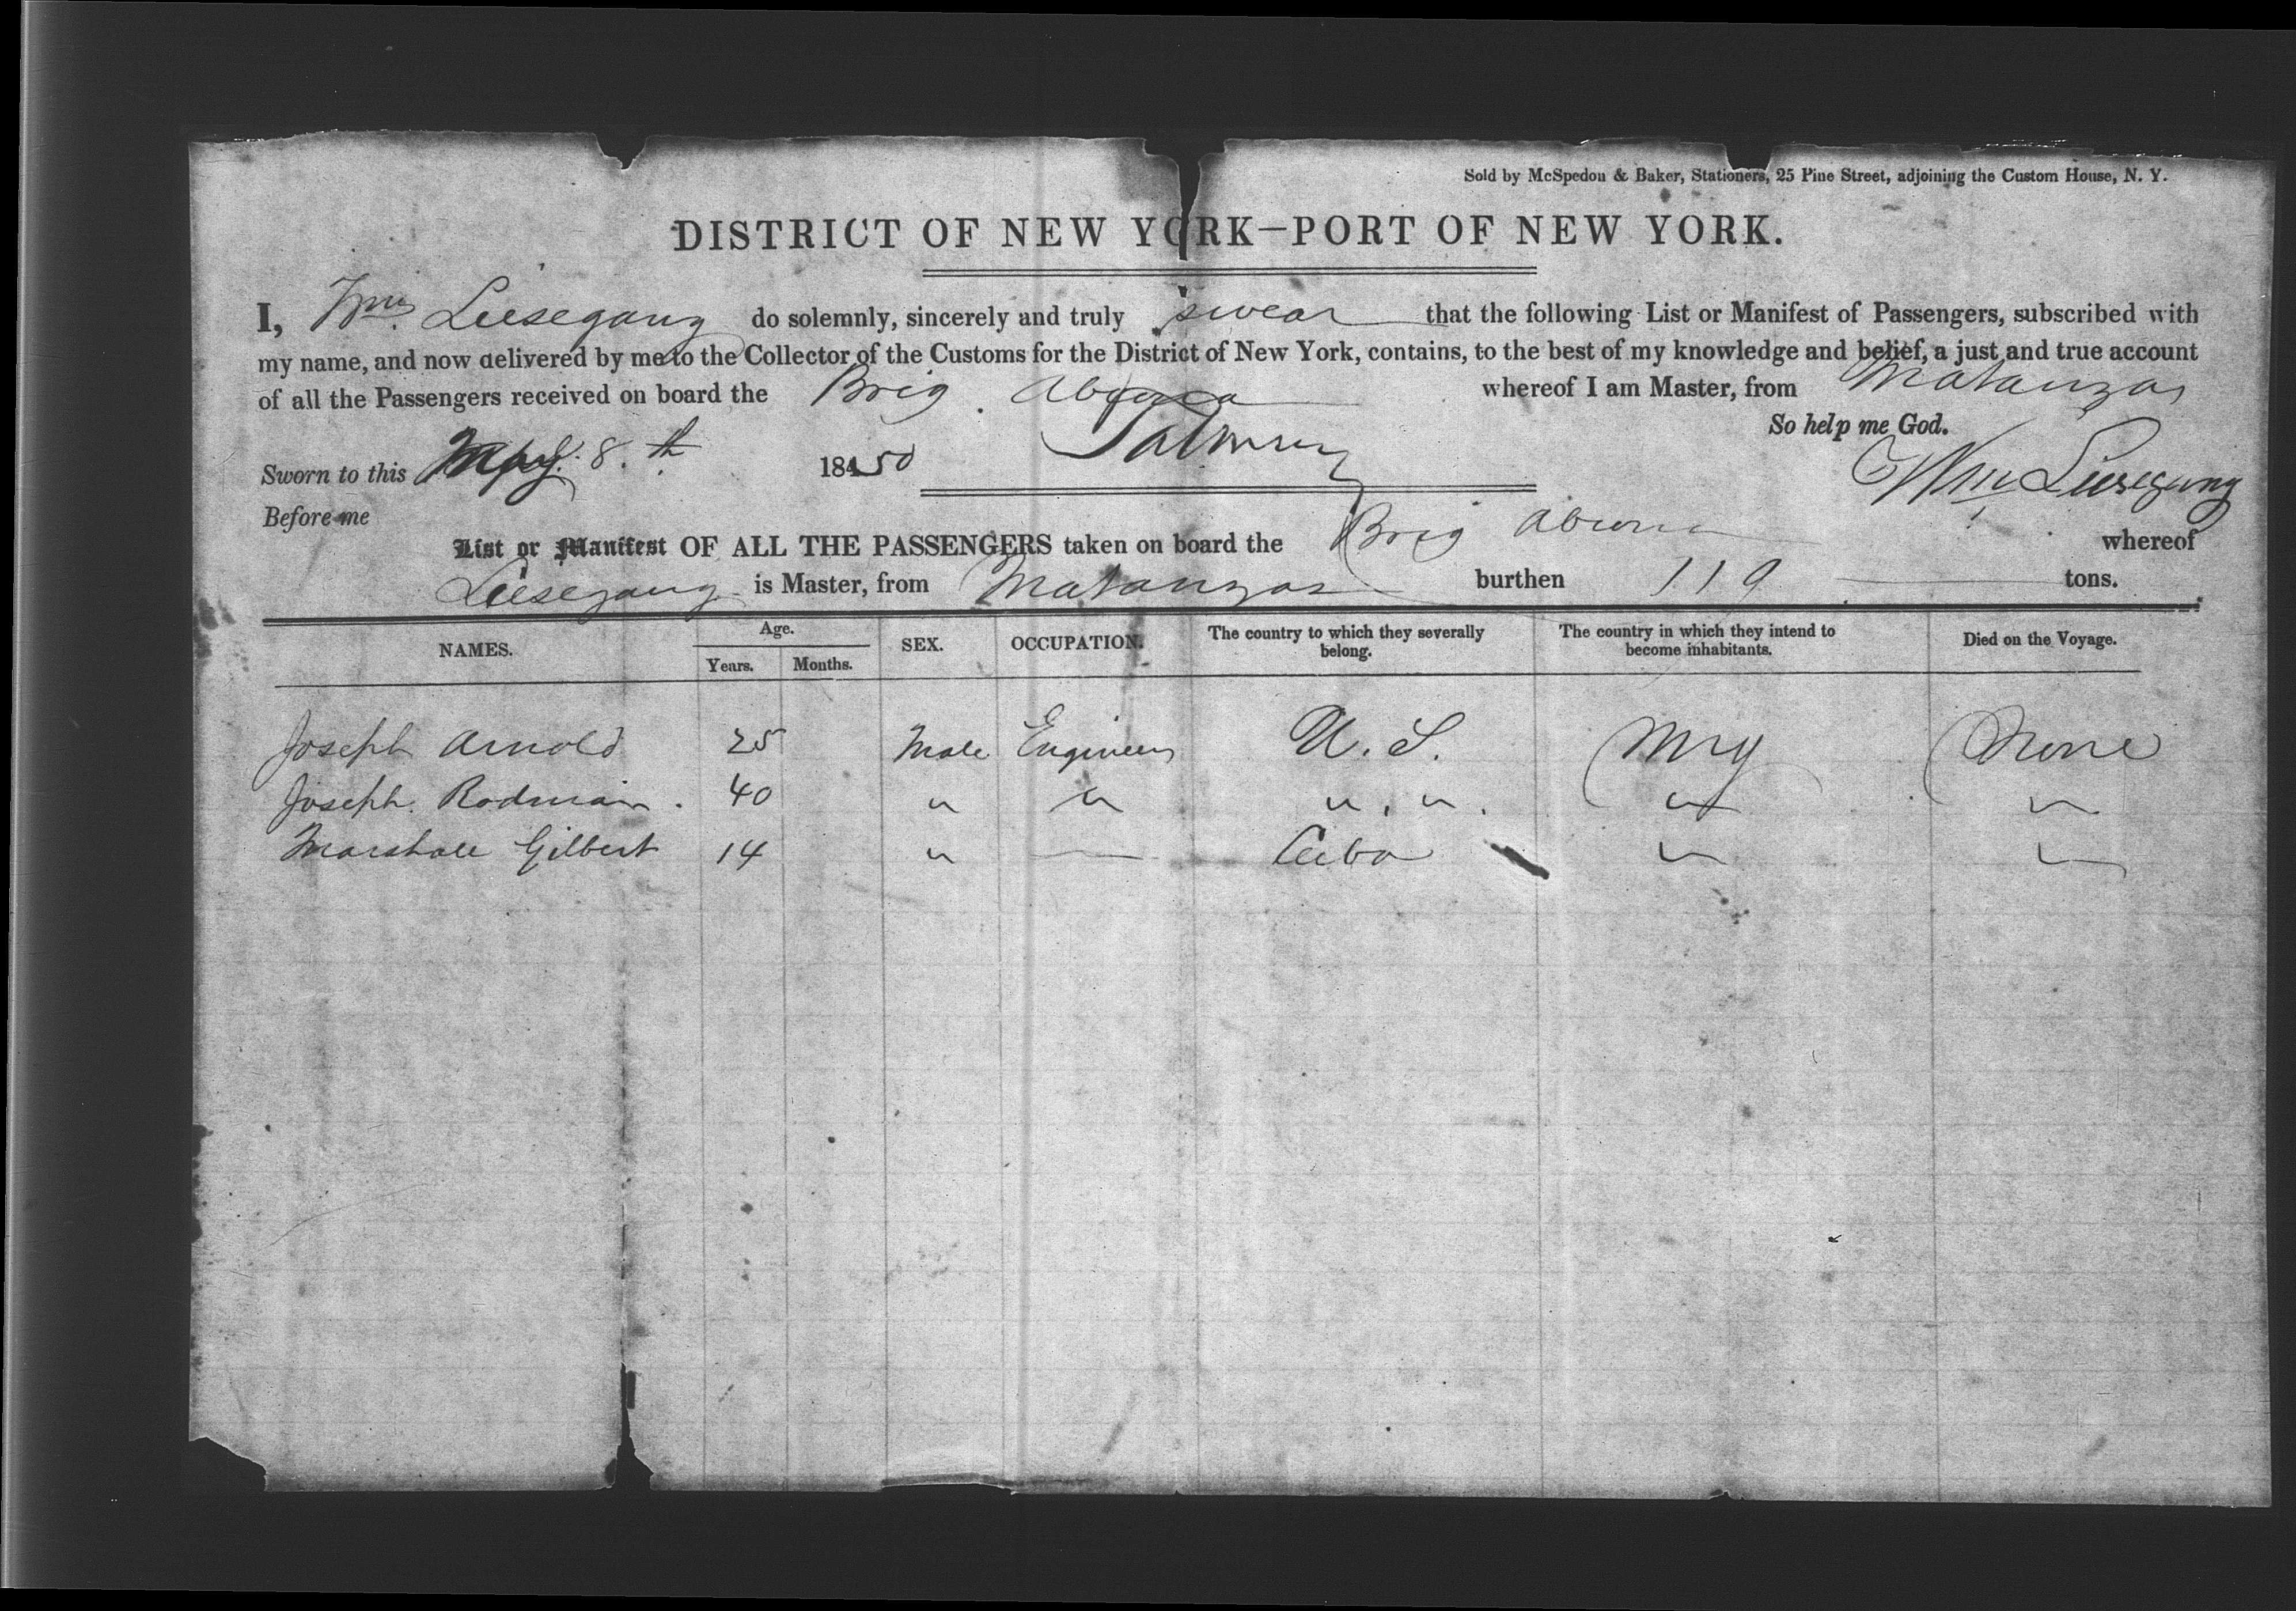 Sold by McSpedon & Baker, Stationers, 25 Pine Street, adjoining the Custom House, N. Y.
DISTRICT OF NEW YORK—PORT OF NEW YORK.
I, Wm. Liesegang do solemnly, sincerely and truly swear that the following List or Manifest of Passengers, subscribed with
my name, and now delivered by me to the Collector of the Customs for the District of New York, contains, to the best of my knowledge and belief, a just and true account
of all the Passengers received on board the Brig whereof I am Master, from Matanzas
So help me God.
Sworn to this May 8.th 1850 Wm Liesegang
Before me
List or Manifest OF ALL THE PASSENGERS taken on board the Brig whereof
Liesegang is Master, from Matanzas burthen 119 tons.
NAMES. Age. SEX. OCCUPATION. The country to which they severally belong. The country in which they intend to become inhabitants. Died on the Voyage.
Years. Months.
Joseph Arnold 25 Male Engineer U. S. None
Joseph Rodman. 40 " " " . " . " "
Marshall Gilbert 14 " — Cuba " "